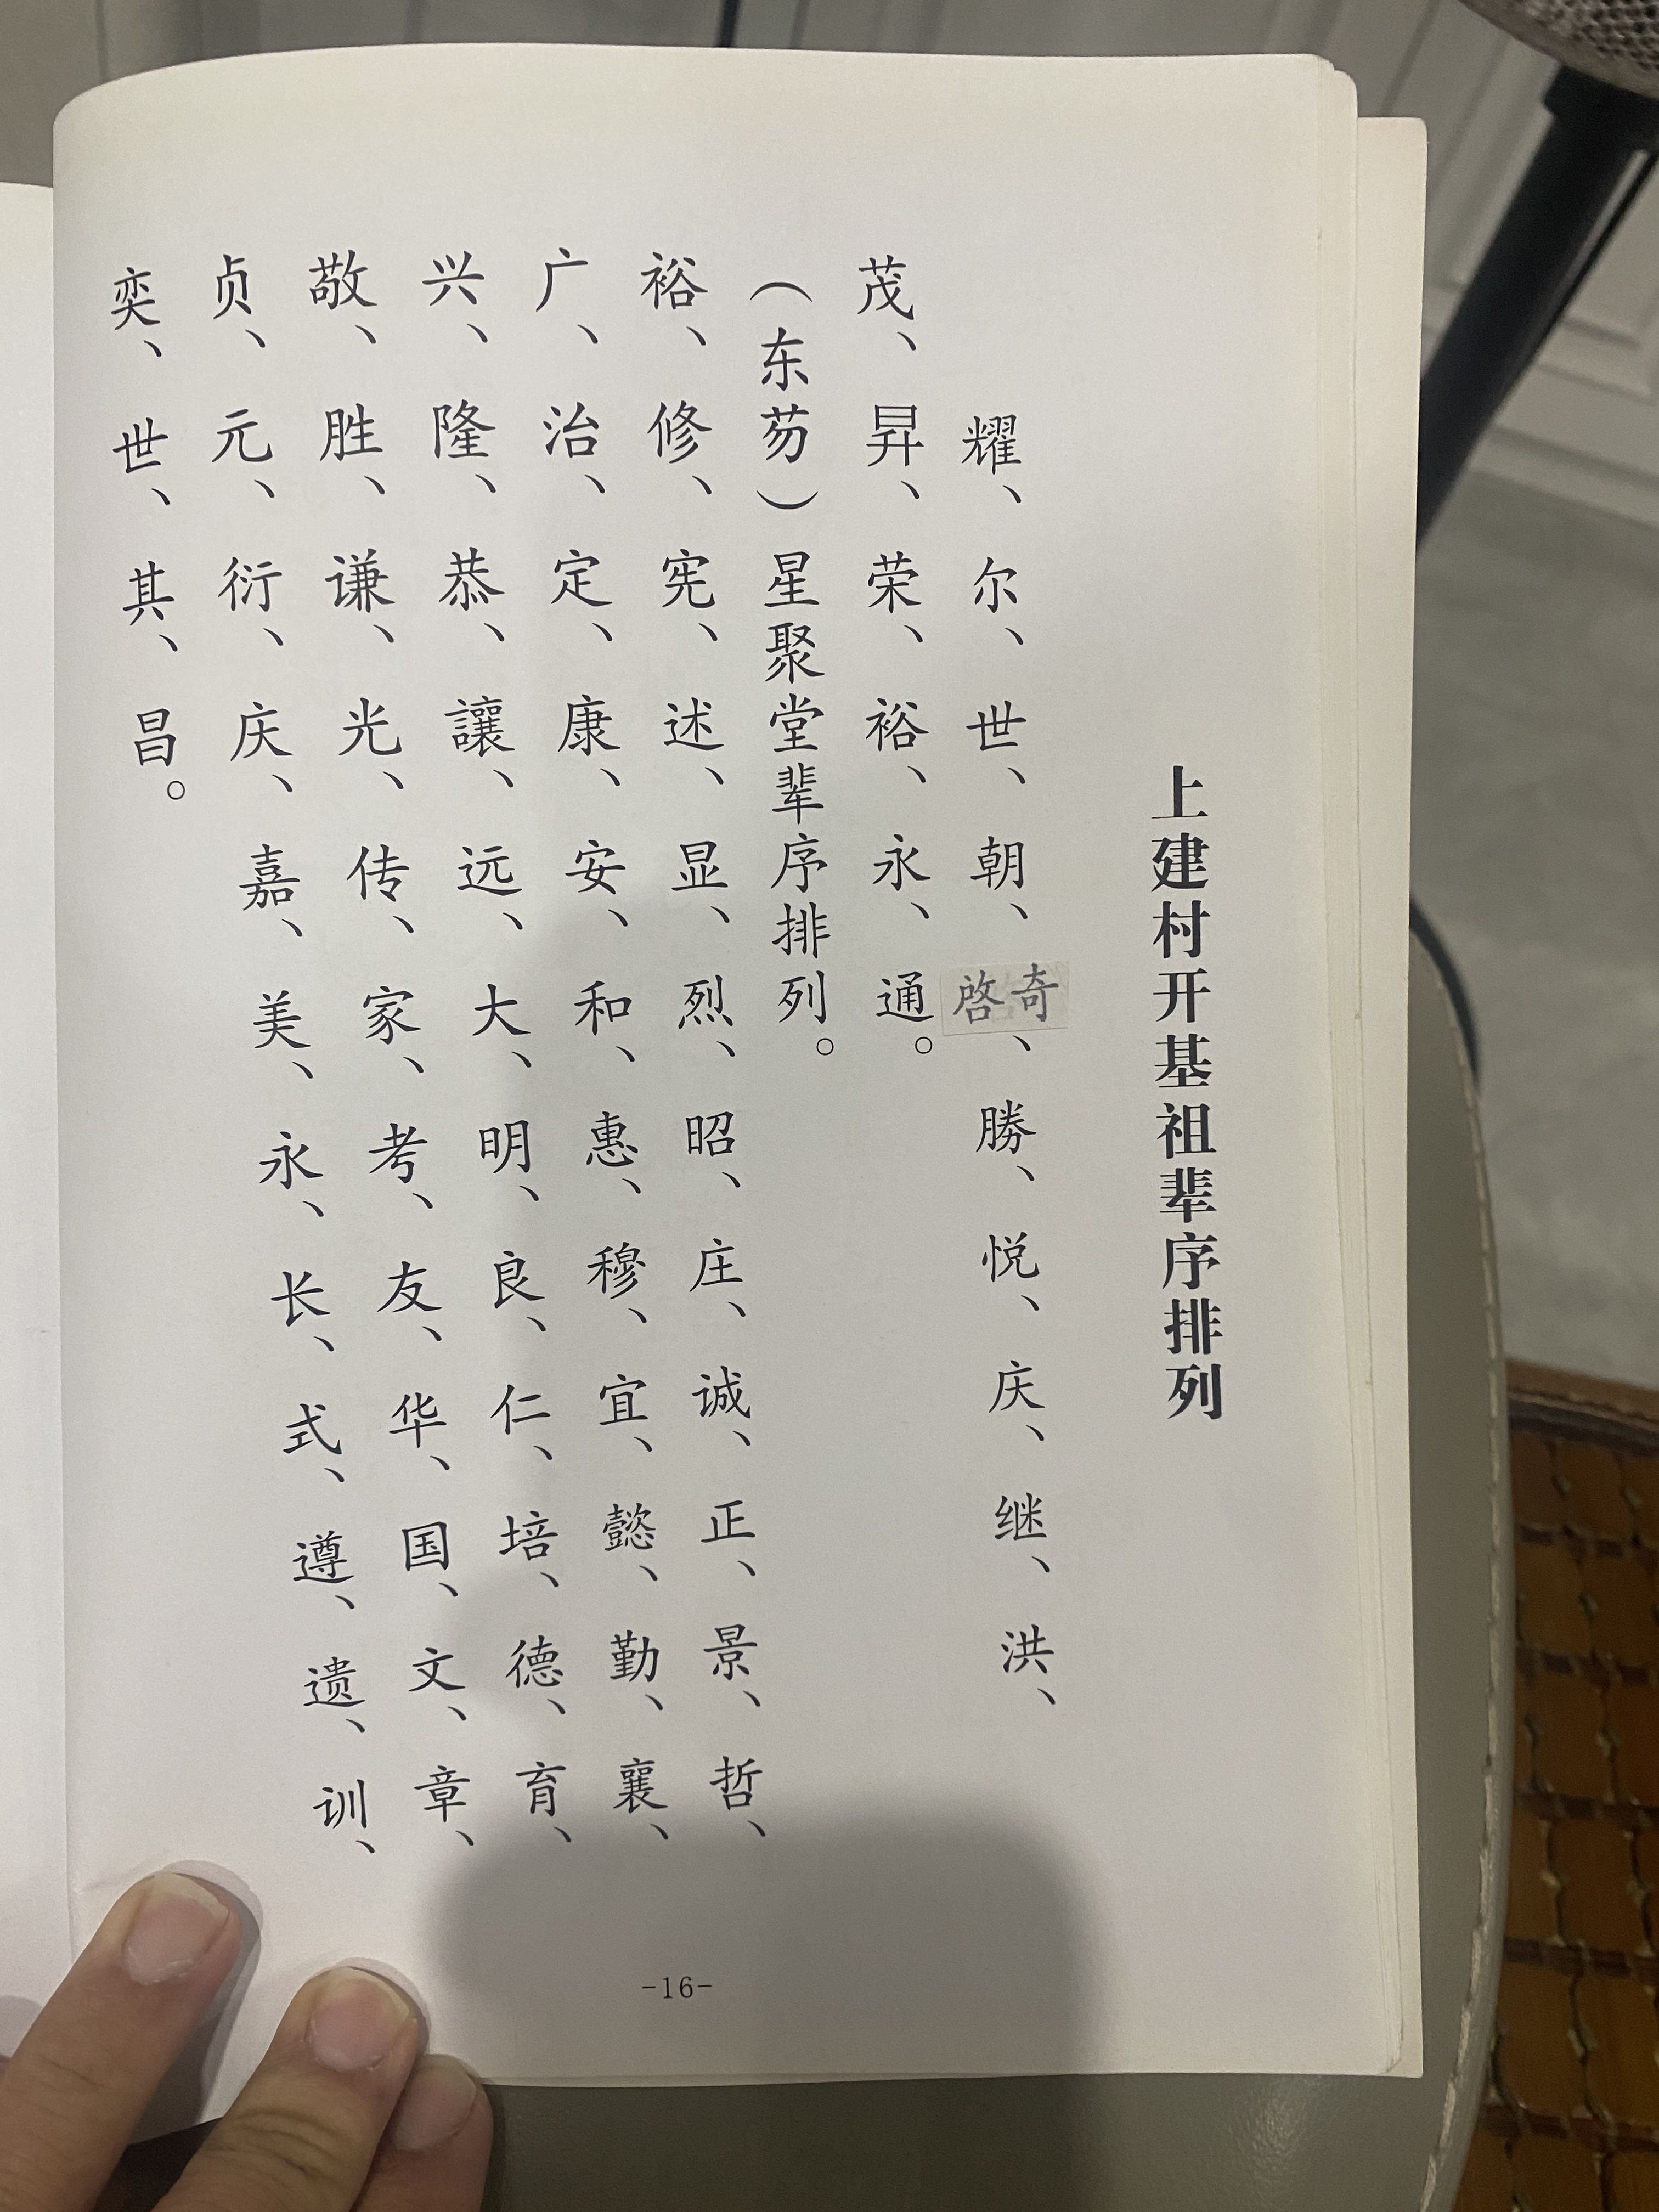 上建村开基祖辈序排列
耀、尔、世、朝、啓奇、勝、悦、庆、继、洪、
茂、昇、荣、裕、永、通。
（东芴）星聚堂辈序排列。
裕、修、宪、述、显、烈、昭、庄、诚、正、景、哲、
广、治、定、康、安、和、惠、穆、宜、懿、勤、襄、
兴、隆、恭、讓、远、大、明、良、仁、培、德、育、
敬、胜、谦、光、传、家、考、友、华、国、文、章、
贞、元、衍、庆、嘉、美、永、长、式、遵、遗、训、
奕、世、其、昌。
-16-